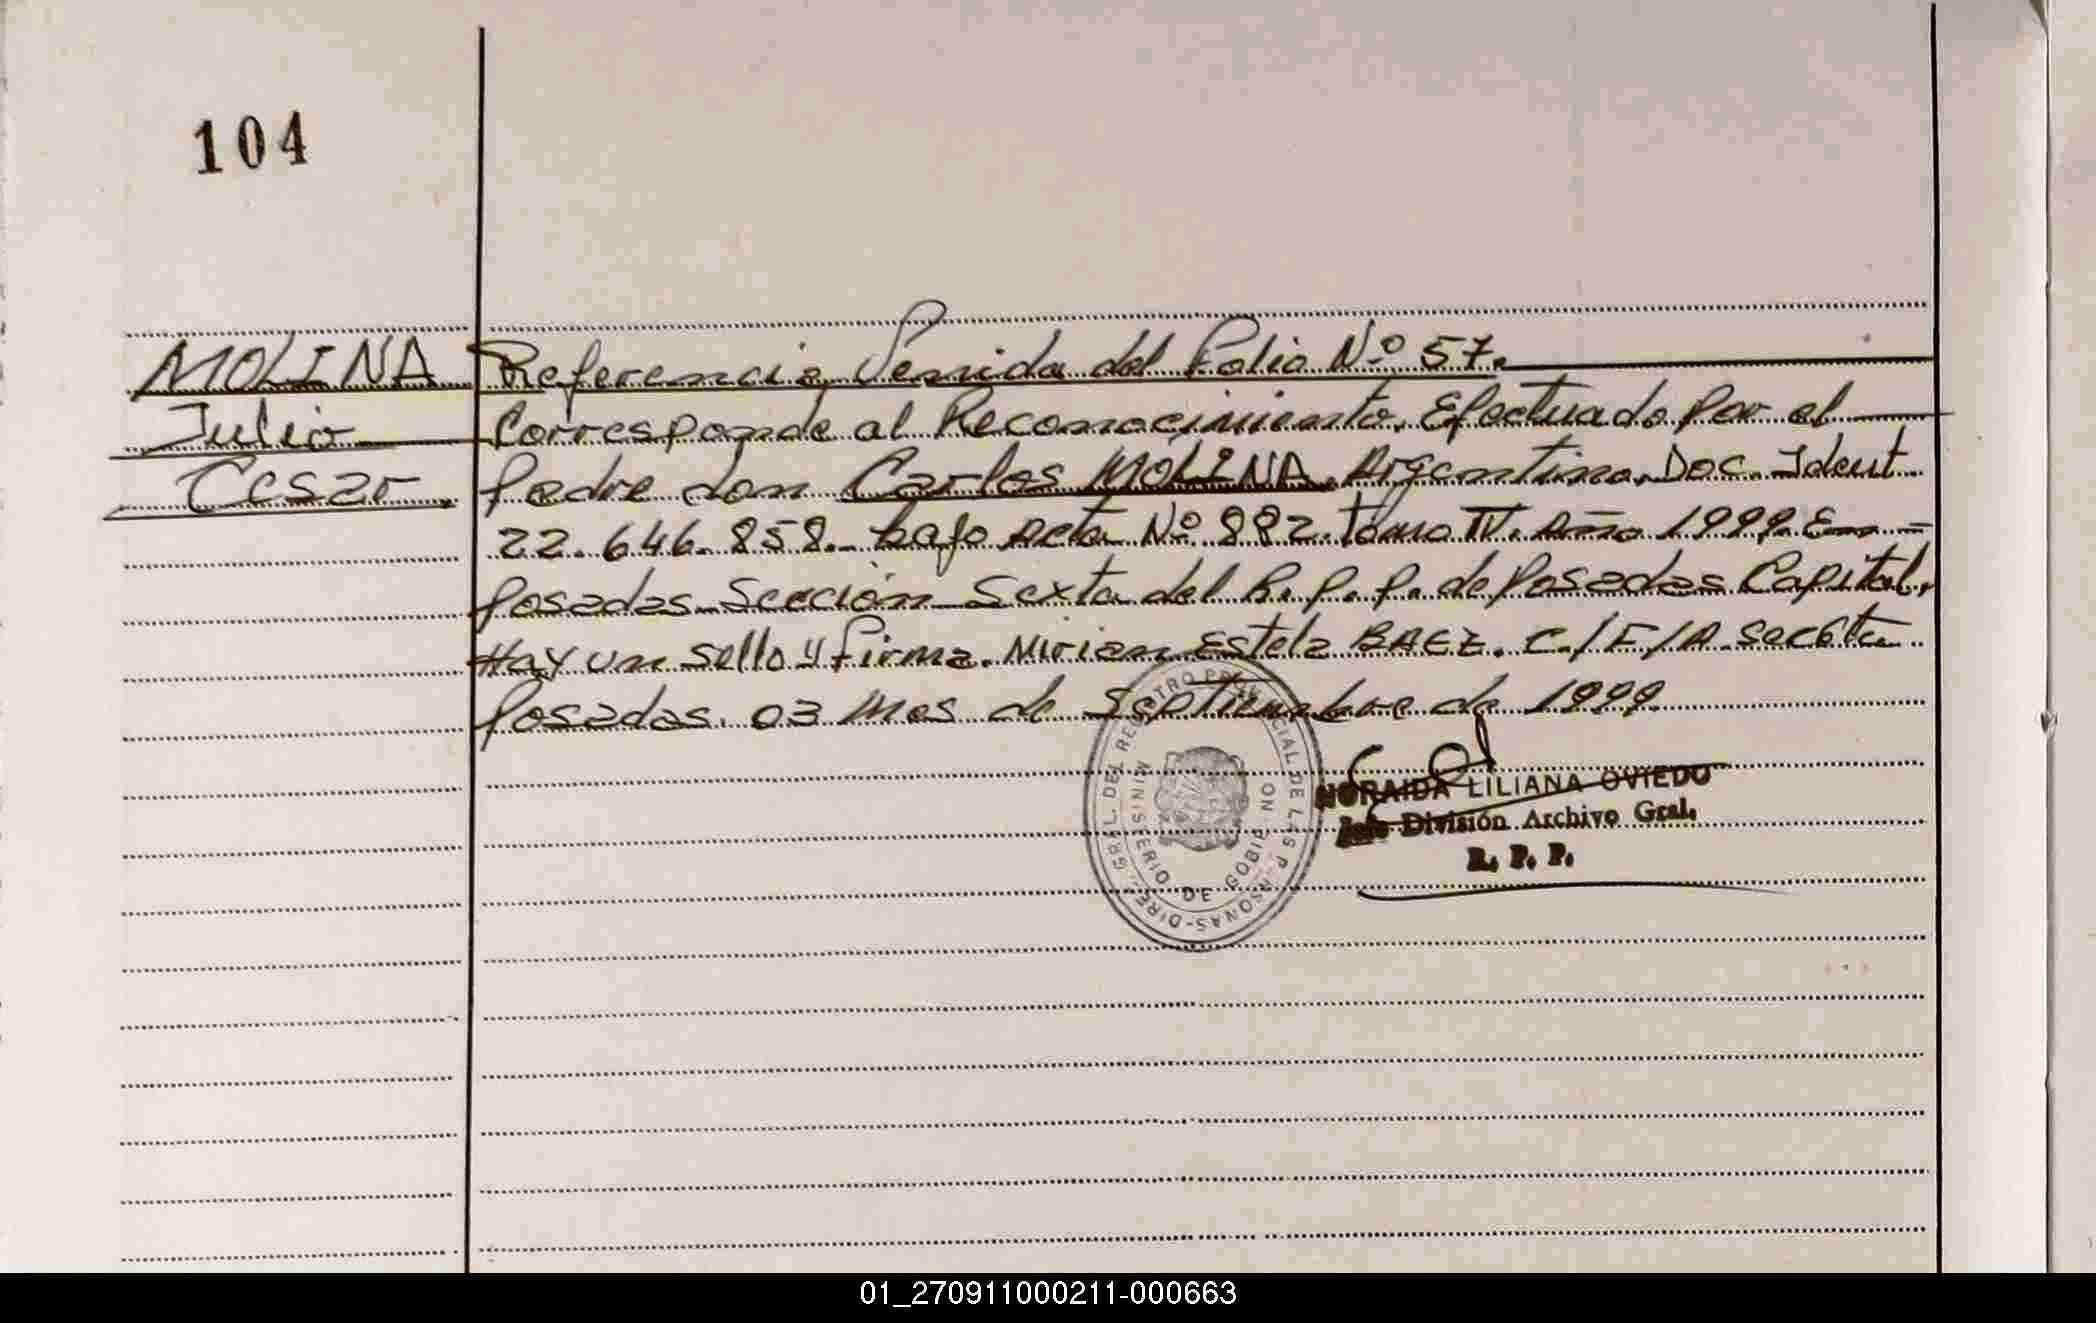 104
MOLINA
Julio
Cesar.
Referencia Venida del Folio Nº 57.
Corresponde al Reconocimiento. Efectuado Por el
Padre don Carlos MOLINA. Argentino. Doc. Ident
22.646.858. bajo Acta Nº 882. Tomo IV. Año 1999. En =
Posadas Sección Sexta del R.P.P. de Posadas Capital,
Hay un sello y firma. Mirian Estela BAEZ. C./F/A.
Posadas. 03 Mes de Septiembre de 1999.
DIRE. GRAL. DEL REGISTRO PROVINCIAL DE LAS PERSONAS
MINISTERIO DE GOBIERNO
NORAIDA LILIANA OVIEDO
Jefe División Archivo Gral.
R. P. P.
01_270911000211-000663